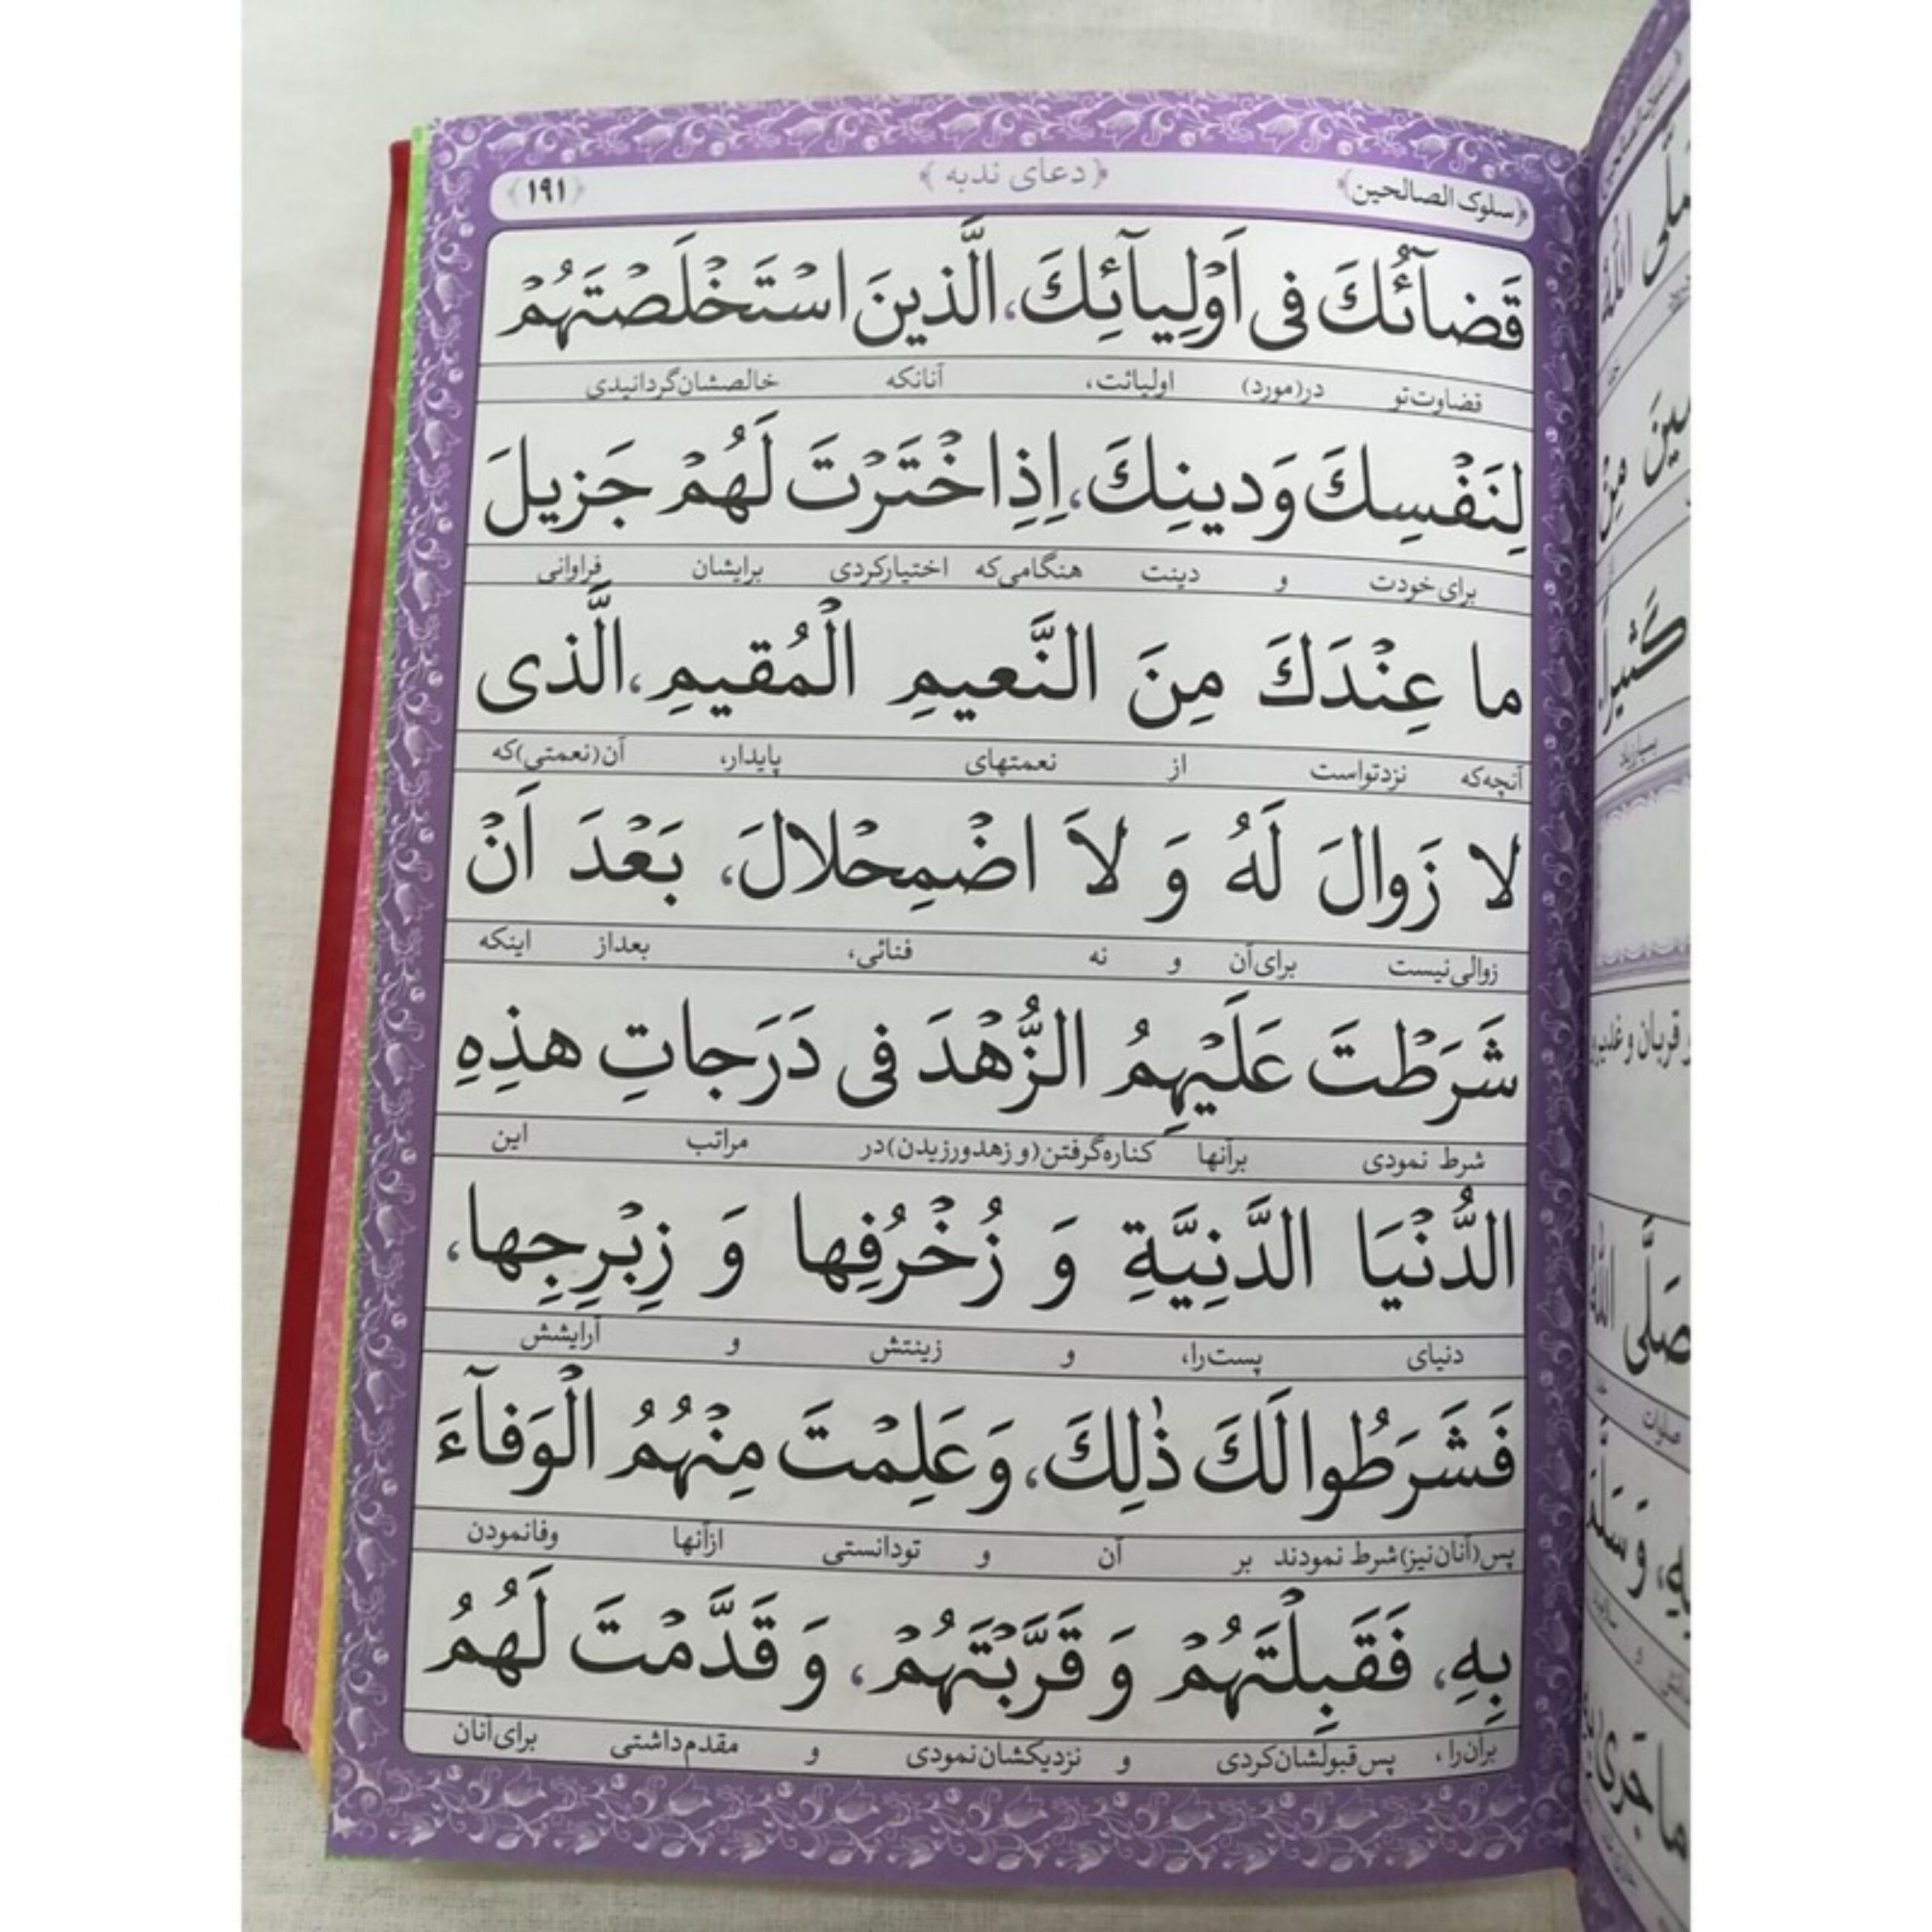 ﴿سلوک الصالحین﴾ ﴿دعای ندبه﴾ ﴿۱۹۱﴾
قَضآئُكَ فى اَوْلِيآئِكَ، الَّذينَ اسْتَخْلَصْتَهُمْ
قضاوت‌تو در(مورد) اولیائت، آنانکه خالصشان‌گردانیدی
لِنَفْسِكَ وَدينِكَ، اِذِاخْتَرْتَ لَهُمْ جَزيلَ
برای‌خودت و دینت هنگامی‌که اختیارکردی برایشان فراوانی
ما عِنْدَكَ مِنَ النَّعيمِ الْمُقيمِ، الَّذى
آنچه‌که نزدتواست از نعمتهای پایدار، آن(نعمتی)که
لا زَوالَ لَهُ وَ لاَ اضْمِحْلالَ، بَعْدَ اَنْ
زوالی‌نیست برای‌آن و نه فنائی، بعداز اینکه
شَرَطْتَ عَلَيْهِمُ الزُّهْدَ فى دَرَجاتِ هذِهِ
شرط نمودی برآنها کناره‌گرفتن(و زهدورزیدن)در مراتب این
الدُّنْيَا الدَّنِيَّةِ وَ زُخْرُفِها وَ زِبْرِجِها،
دنیای پست‌را، و زینتش و آرایشش
فَشَرَطُوا لَكَ ذٰلِكَ، وَعَلِمْتَ مِنْهُمُ الْوَفآءَ
پس(آنان‌نیز)شرط نمودند بر آن و تودانستی ازآنها وفانمودن
بِهِ، فَقَبِلْتَهُمْ وَ قَرَّبْتَهُمْ، وَ قَدَّمْتَ لَهُمُ
برآن‌را، پس‌قبولشان‌کردی و نزدیکشان‌نمودی و مقدم‌داشتی برای‌آنان
مِنْ
کَثیراً
و قربان و غدیر
صَلَّى اللهُ
صلوات
ما جَرى